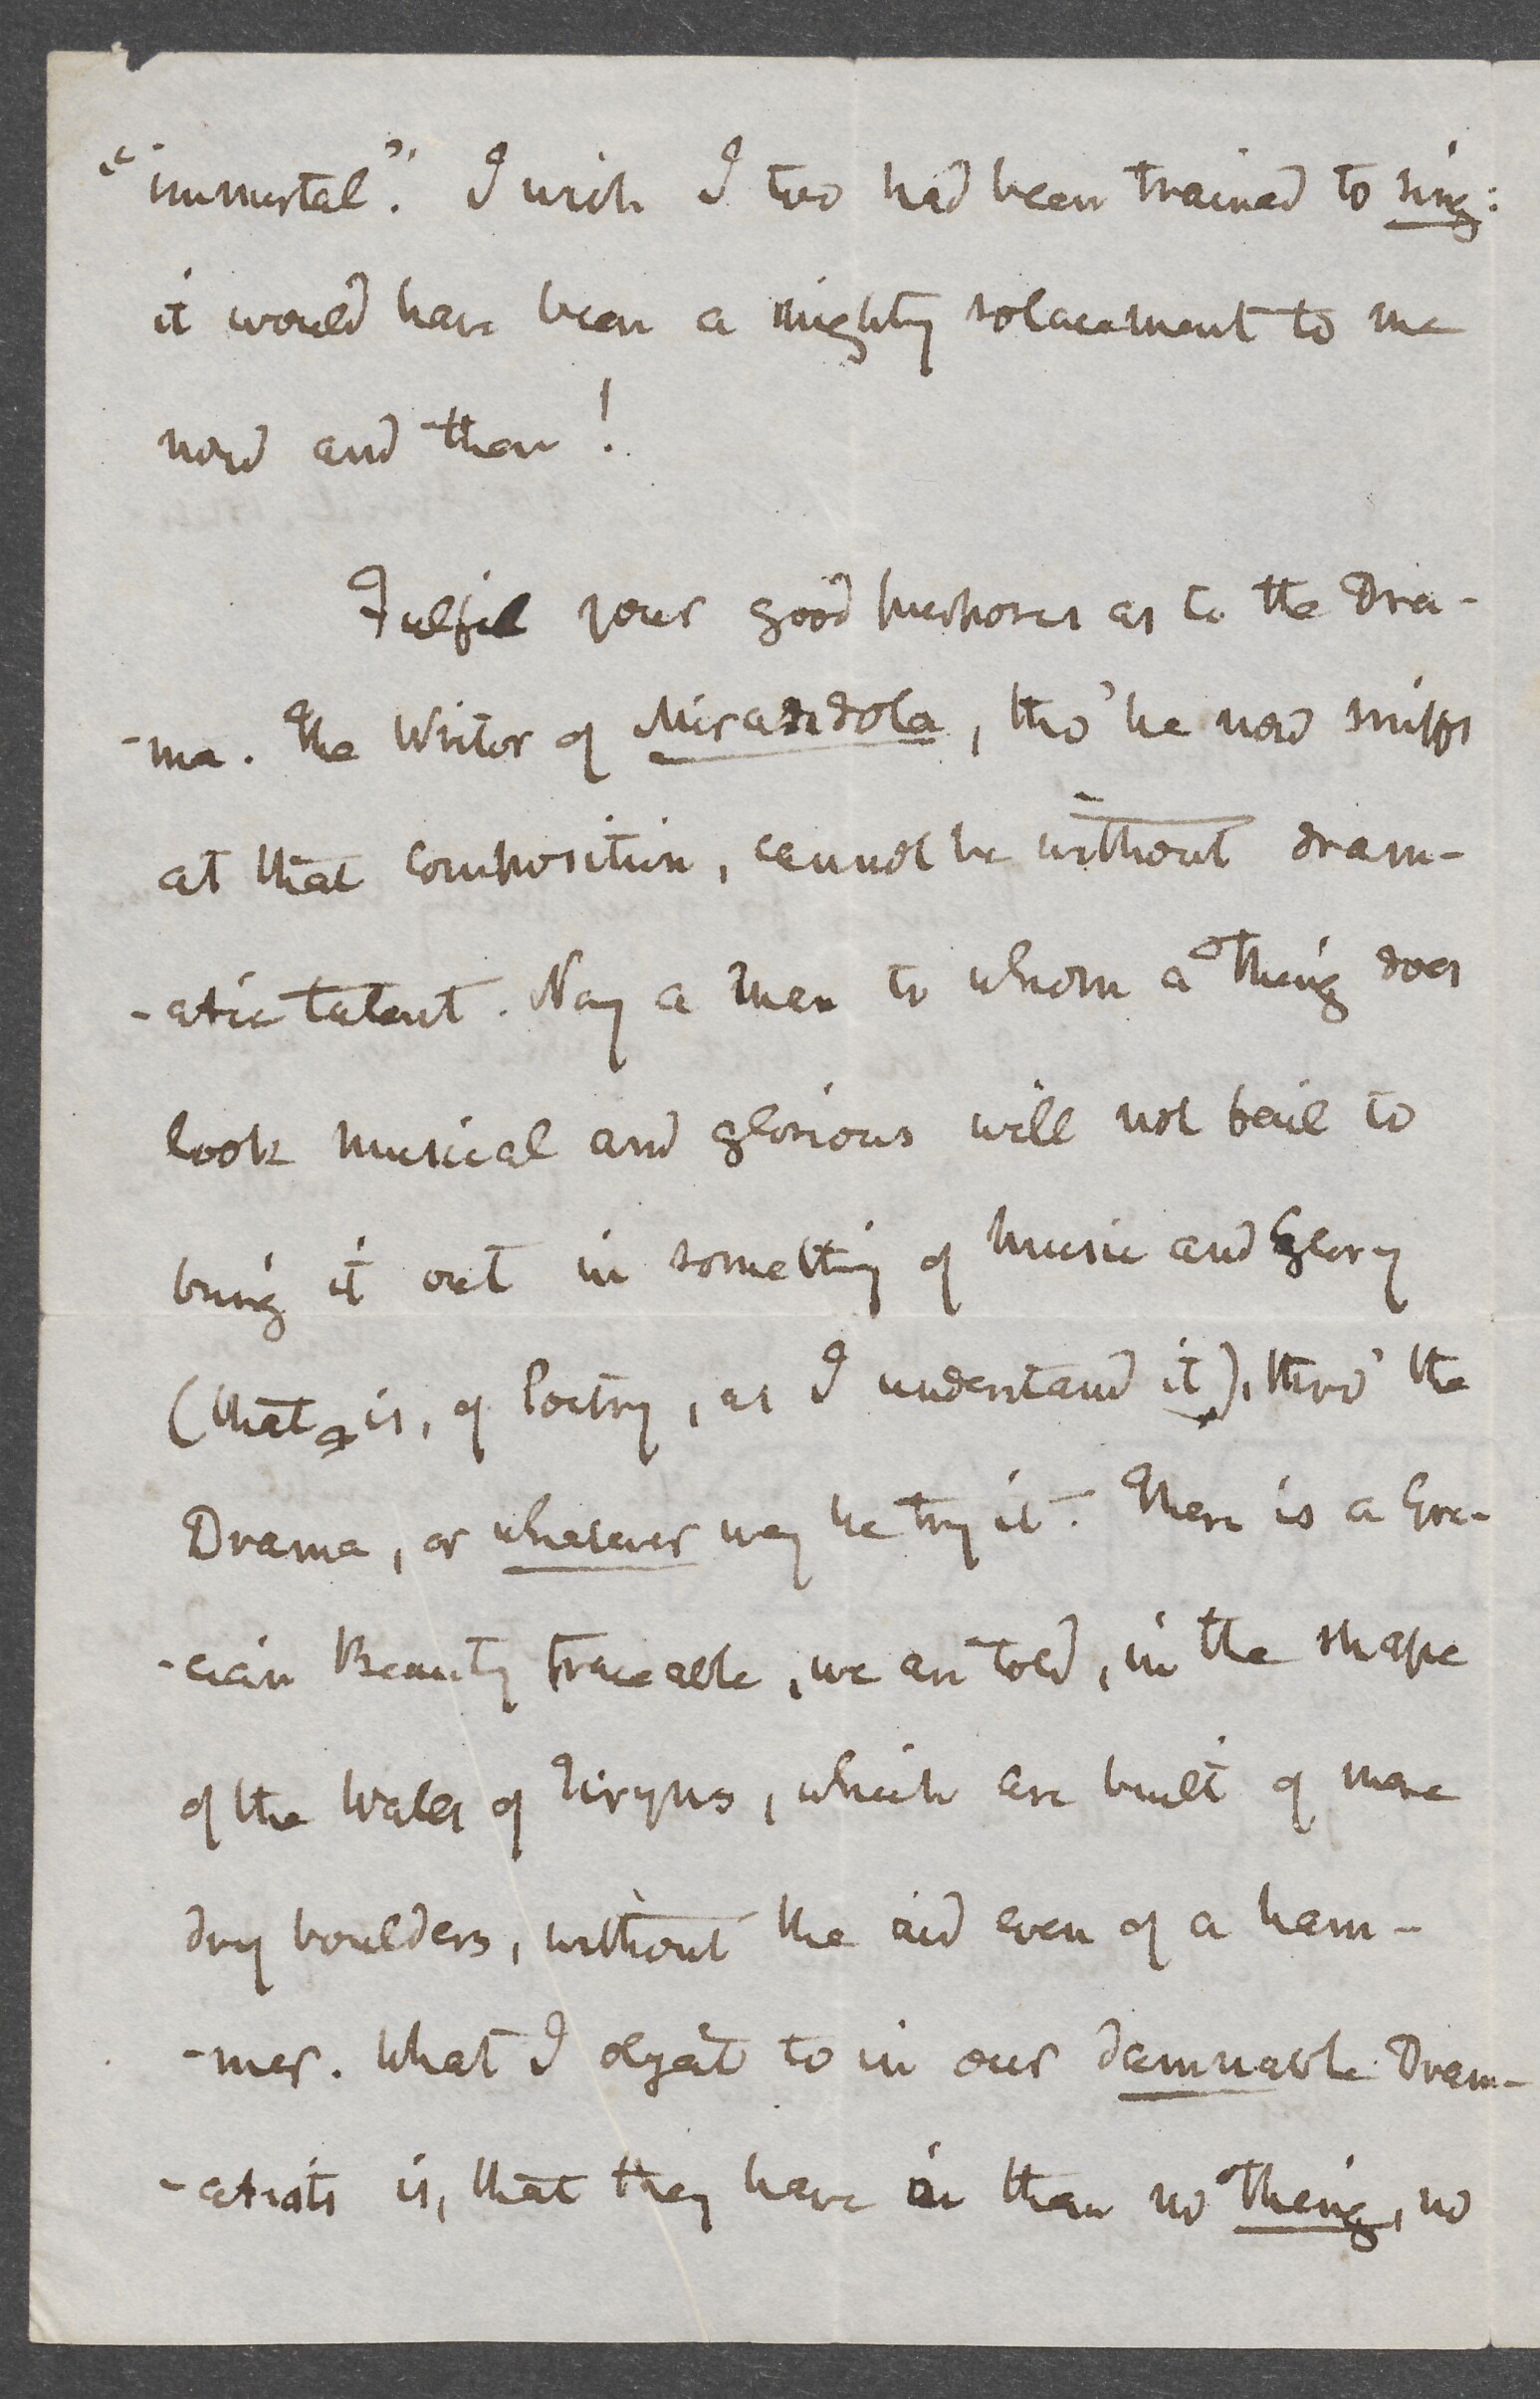 "immortal". I wish I too had been trained to sing:
it would have been a mighty solacement to me
now and then!
Fulfil your good purposes as to the Dra-
-ma. The Writer of Mirandola, tho' he now sniffs
at that composition, cannot be without dram-
-atic talent. Nay a man to whom a Thing does
look musical and glorious will not fail to
bring it out in something of Music and Glory
(that is, of Poetry, as I understand it), thro' the
Drama, or whatever way he try it. There is a Gre-
-cian Beauty traceable, we are told, in the shape
of the Walls of Tiryns, which are built of mere
dry boulders, without the aid even of a ham-
-mer. What I object to in our damnable Dram-
-atists is, that they have in them no Thing, no